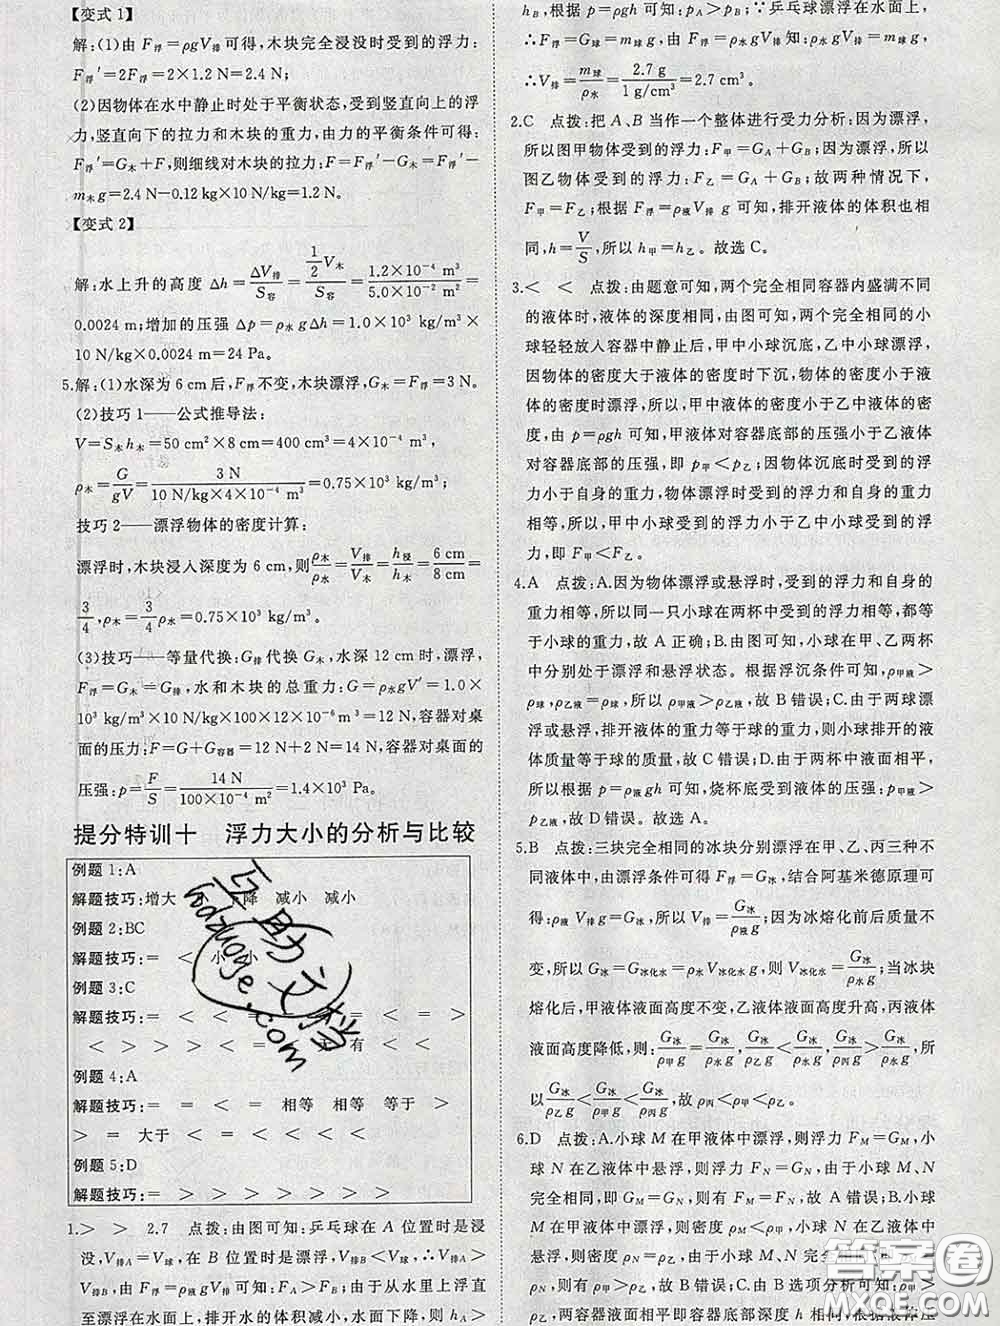 【变式 1】
解:(1)由 F浮=ρgV排可得,木块完全浸没时的浮力:
F浮′=2F浮=2×1.2 N=2.4 N;
(2)因物体在水中静止时处于平衡状态,受到竖直向上的浮
力,竖直向下的拉力和木块的重力,由力的平衡条件可得:
F浮′=G木+F,则细线对木块的拉力:F=F浮′-G木=F浮′-
m木g=2.4 N-0.12 kg×10 N/kg=1.2 N。
【变式 2】
解:水上升的高度 Δh=ΔV排/S容=(1/2)V木/S容=1.2×10⁻⁴ m³/5.0×10⁻² m²=
0.0024 m;增加的压强 Δp=ρ水gΔh=1.0×10³ kg/m³×
10 N/kg×0.0024 m=24 Pa。
5.解:(1)水深为 6 cm后,F浮不变,木块漂浮,G木=F浮=3 N。
(2)技巧 1——公式推导法:
V=S木h木=50 cm²×8 cm=400 cm³=4×10⁻⁴ m³,
ρ木=G/gV=3 N/10 N/kg×4×10⁻⁴ m³=0.75×10³ kg/m³
技巧 2——漂浮物体的密度计算:
漂浮时,木块浸入深度为 6 cm,则ρ木/ρ水=V排/V木=h浸/h木=6 cm/8 cm=
3/4,ρ木=3/4ρ水=0.75×10³ kg/m³
(3)技巧——等量代换:G排代换 G木,水深 12 cm时,漂浮,
F浮=G木=G排,水和木块的总重力:G=ρ水gV′=1.0×
10³ kg/m³×10 N/kg×100×12×10⁻⁶m³=12 N,容器对桌
面的压力:F=G+G容器=12 N+2 N=14 N,容器对桌面的
压强:p=F/S=14 N/100×10⁻⁴ m²=1.4×10³ Pa。
提分特训十 浮力大小的分析与比较
例题 1:A
解题技巧:增大 降 减小 减小
例题 2:BC
解题技巧:= < 小 小
例题 3:C
解题技巧:= = < < = < = >
< > > > < 有 < <
例题 4:A
解题技巧:= = < = 相等 相等 等于 >
> = 大于 < = < < < <
例题 5:D
解题技巧:= > > > > > > >
1.> > 2.7 点拨:由图可知:乒乓球在 A 位置时是浸
没,V排A=V球,在 B 位置时是漂浮,V排B<V球,∴V排A>
V排B,根据 F浮=ρ水gV排可知:F浮A>F浮B;由于从水里上浮直
至漂浮在水面上,排开水的体积减小,水面下降,则 hA>
hB,根据 p=ρgh 可知:pA>pB;∵乒乓球漂浮在水面上,
∴F浮=G球=m球g,由 F浮=ρ水gV排知:ρ水gV排=m球g,
∴V排=m球/ρ水=2.7 g/1 g/cm³=2.7 cm³。
2.C 点拨:把 A、B 当作一个整体进行受力分析:因为漂浮,
所以图甲物体受到的浮力:F甲=GA+GB;因为漂浮,所以
图乙物体受到的浮力:F乙=GA+GB;故两种情况下,
F甲=F乙;根据 F浮=ρ液V排g 可知,排开液体的体积也相
同,h=V/S,所以 h甲=h乙。故选 C。
3.< < 点拨:由题意可知,两个完全相同容器内盛满不同
的液体时,液体的深度相同,由图可知,两个完全相同的小
球轻轻放入容器中静止后,甲中小球沉底,乙中小球漂浮,
因物体的密度大于液体的密度时下沉,物体的密度小于液
体的密度时漂浮,所以,甲中液体的密度小于乙中液体的密
度,由 p=ρgh 可知,甲液体对容器底部的压强小于乙液体
对容器底部的压强,即 p甲<p乙;因物体沉底时受到的浮力
小于自身的重力,物体漂浮时受到的浮力和自身的重力
相等,所以,甲中小球受到的浮力小于乙中小球受到的浮
力,即 F甲<F乙。
4.A 点拨:A.因为物体漂浮或悬浮时,受到的浮力和自身的
重力相等,所以同一只小球在两杯中受到的浮力相等,都等
于小球的重力,故 A 正确;B.由图可知,小球在甲、乙两杯
中分别处于漂浮和悬浮状态。根据浮沉条件可知,ρ甲液>
ρ球,ρ乙液=ρ球,所以,ρ甲液>ρ乙液,故 B 错误;C.由于两球漂
浮或悬浮,排开液体的重力等于球的重力,所以小球排开的液
体质量等于球的质量,故 C 错误;D.由于两杯中液面相平,
所以根据 p=ρ液gh 可知,烧杯底受到液体的压强:p甲液>
p乙液,故 D 错误。故选 A。
5.B 点拨:三块完全相同的冰块分别漂浮在甲、乙、丙三种不
同液体中,由漂浮条件可得 F浮=G冰,结合阿基米德原理可
得:ρ液V排g=G冰,所以 V排=G冰/ρ液g;因为冰熔化前后质量不
变,所以 G冰=G冰化水=ρ水V冰化水g,则V冰化水=G冰/ρ水g;当冰块
熔化后,甲液体液面高度不变,乙液体液面高度升高,丙液体
液面高度降低,则:G冰/ρ甲g=G冰/ρ水g,G冰/ρ乙g<G冰/ρ水g,G冰/ρ丙g>G冰/ρ水g,所
以G冰/ρ乙g<G冰/ρ甲g<G冰/ρ丙g,故 ρ丙<ρ甲<ρ乙。
6.D 点拨:A.小球 M 在甲液体中漂浮,则浮力 FM=GM,小
球 N 在乙液体中悬浮,则浮力 FN=GN,由于小球 M、N
完全相同,即 GM=GN,则有 FM=FN,故 A 错误;B.小球
M 在甲液体中漂浮,则密度 ρM<ρ甲,小球 N 在乙液体中
悬浮,则密度 ρN=ρ乙,由于小球 M、N 完全相同,即 ρM=
ρN,则有 ρ甲>ρ乙,故 B 错误;C.由 B 选项分析可知:ρ甲>
ρ乙,两容器液面相平即容器底部深度 h 相同,根据液体压
互助文档
hdzuoye.com
答案圈
MXQE.COM